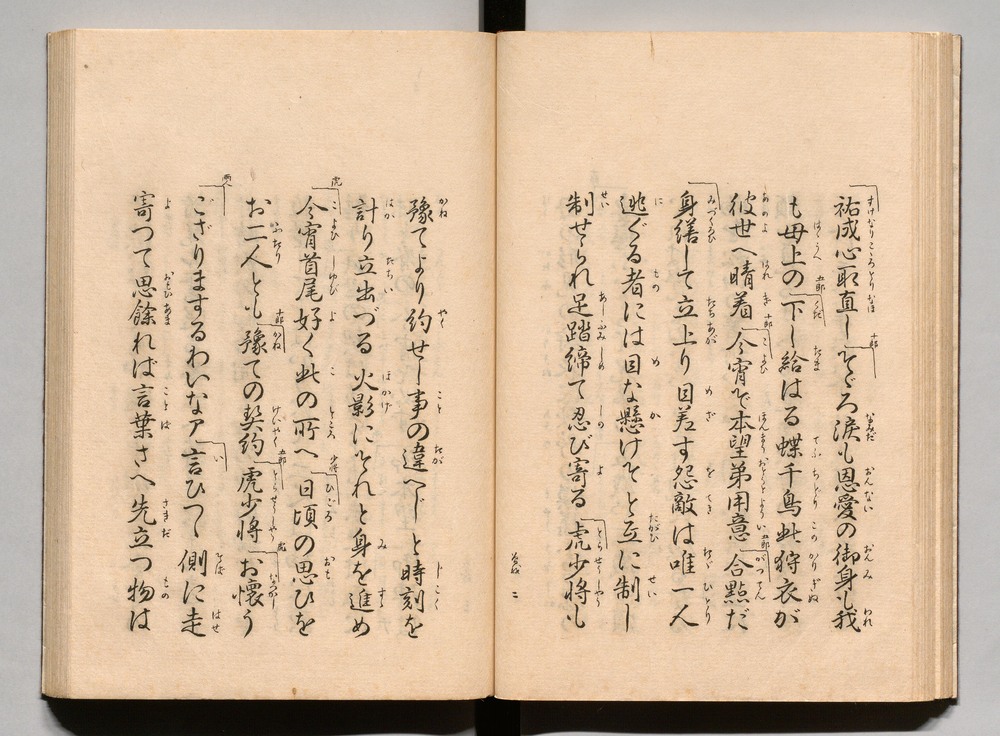 祐成心取直しそゞろ涙も恩愛の御身も我
も母上の下し給はる蝶千鳥此狩衣が
彼世へ晴着今宵ぞ本望弟用意合點だ
身繕して立上り目差す怨敵は唯一人
逃ぐる者には目な懸けそと互に制し
制せられ足踏締て忍び寄る虎少将も
豫てより約せし事の違へじと時刻を
計り立出づる火影にそれと身を進め
今宵首尾好く此の所へ日頃の思ひを
お二人とも豫ての契約虎少将お懐う
ござりまするわいなア言ひつゝ側に走
寄つて思餘れば言葉さへ先立つ物は